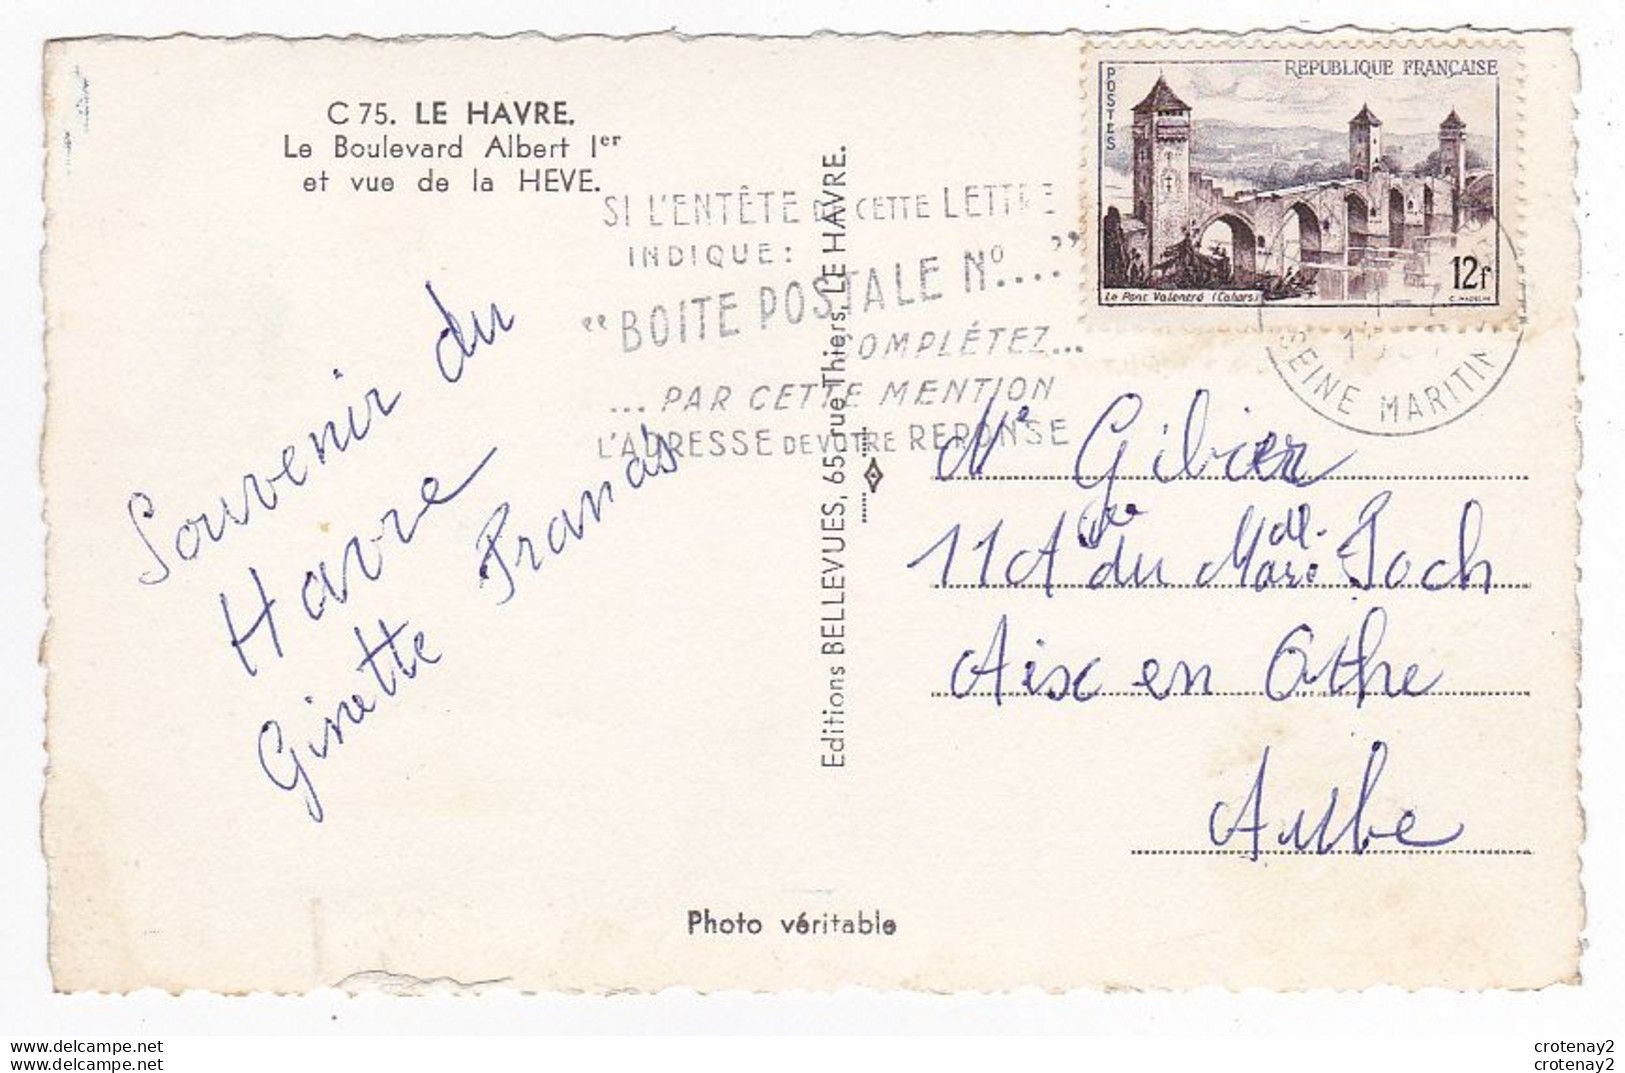 C 75. LE HAVRE.
Le Boulevard Albert Ier
et vue de la HEVE.
SI L'ENTÊTE DE CETTE LETTRE
INDIQUE:
"BOITE POSTALE No...."
COMPLÉTEZ...
...PAR CETTE MENTION
L'ADRESSE DE VOTRE REPONSE
POSTES
REPUBLIQUE FRANÇAISE
Le Pont Valentré (Cahors)
12f
SEINE MARITIM
Souvenir du
Havre
Ginette Francis
Editions BELLEVUES, 65, rue Thiers, LE HAVRE.
Me Gibier
11 A du Mal Foch
Aix en Othe
Aube
Photo véritable
www.delcampe.net
www.delcampe.net
crotenay2
crotenay2